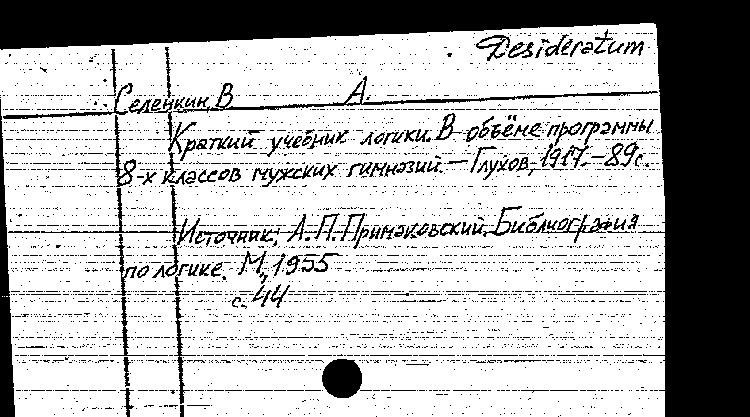 Desideratum
Селенкин, В А.
Краткий учебник логики. В объёме программы
8-х классов мужских гимназий. — Глухов, 1917. — 89 с.
Источник: А. П. Примаковский. Библиография
по логике. М., 1955
с. 44